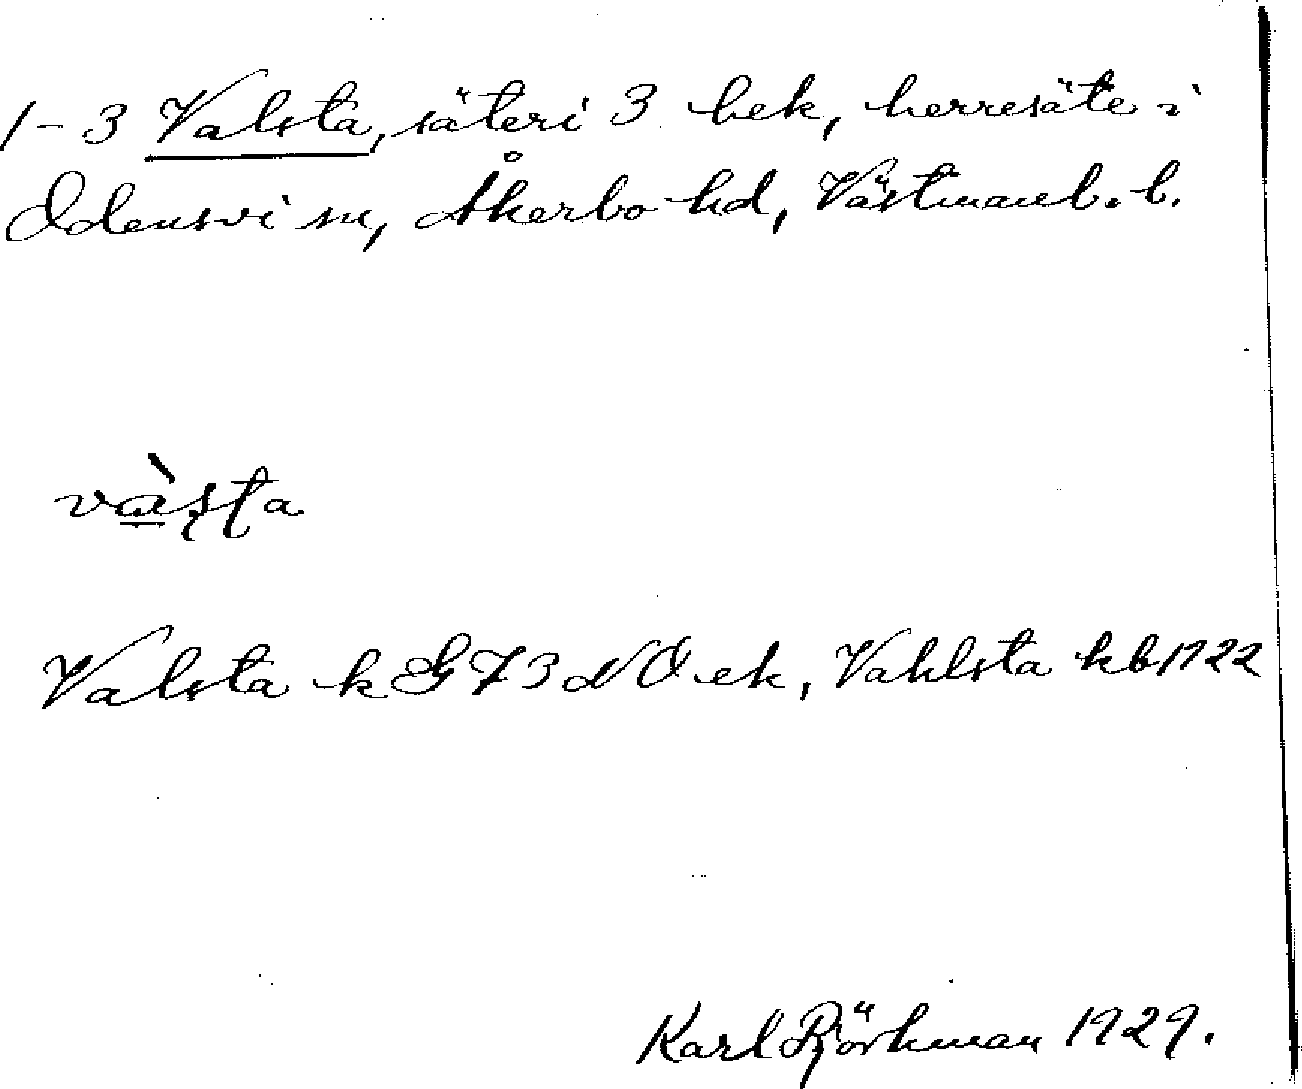 1-3 Valsta, säteri 3 hek, herresäte i
Odensvi sn, Åkerbo hd, Västmanl. l.
vàsta
Valsta k G 73 NO ek, Vahlsta kb 1722
Karl Björkman 1929.